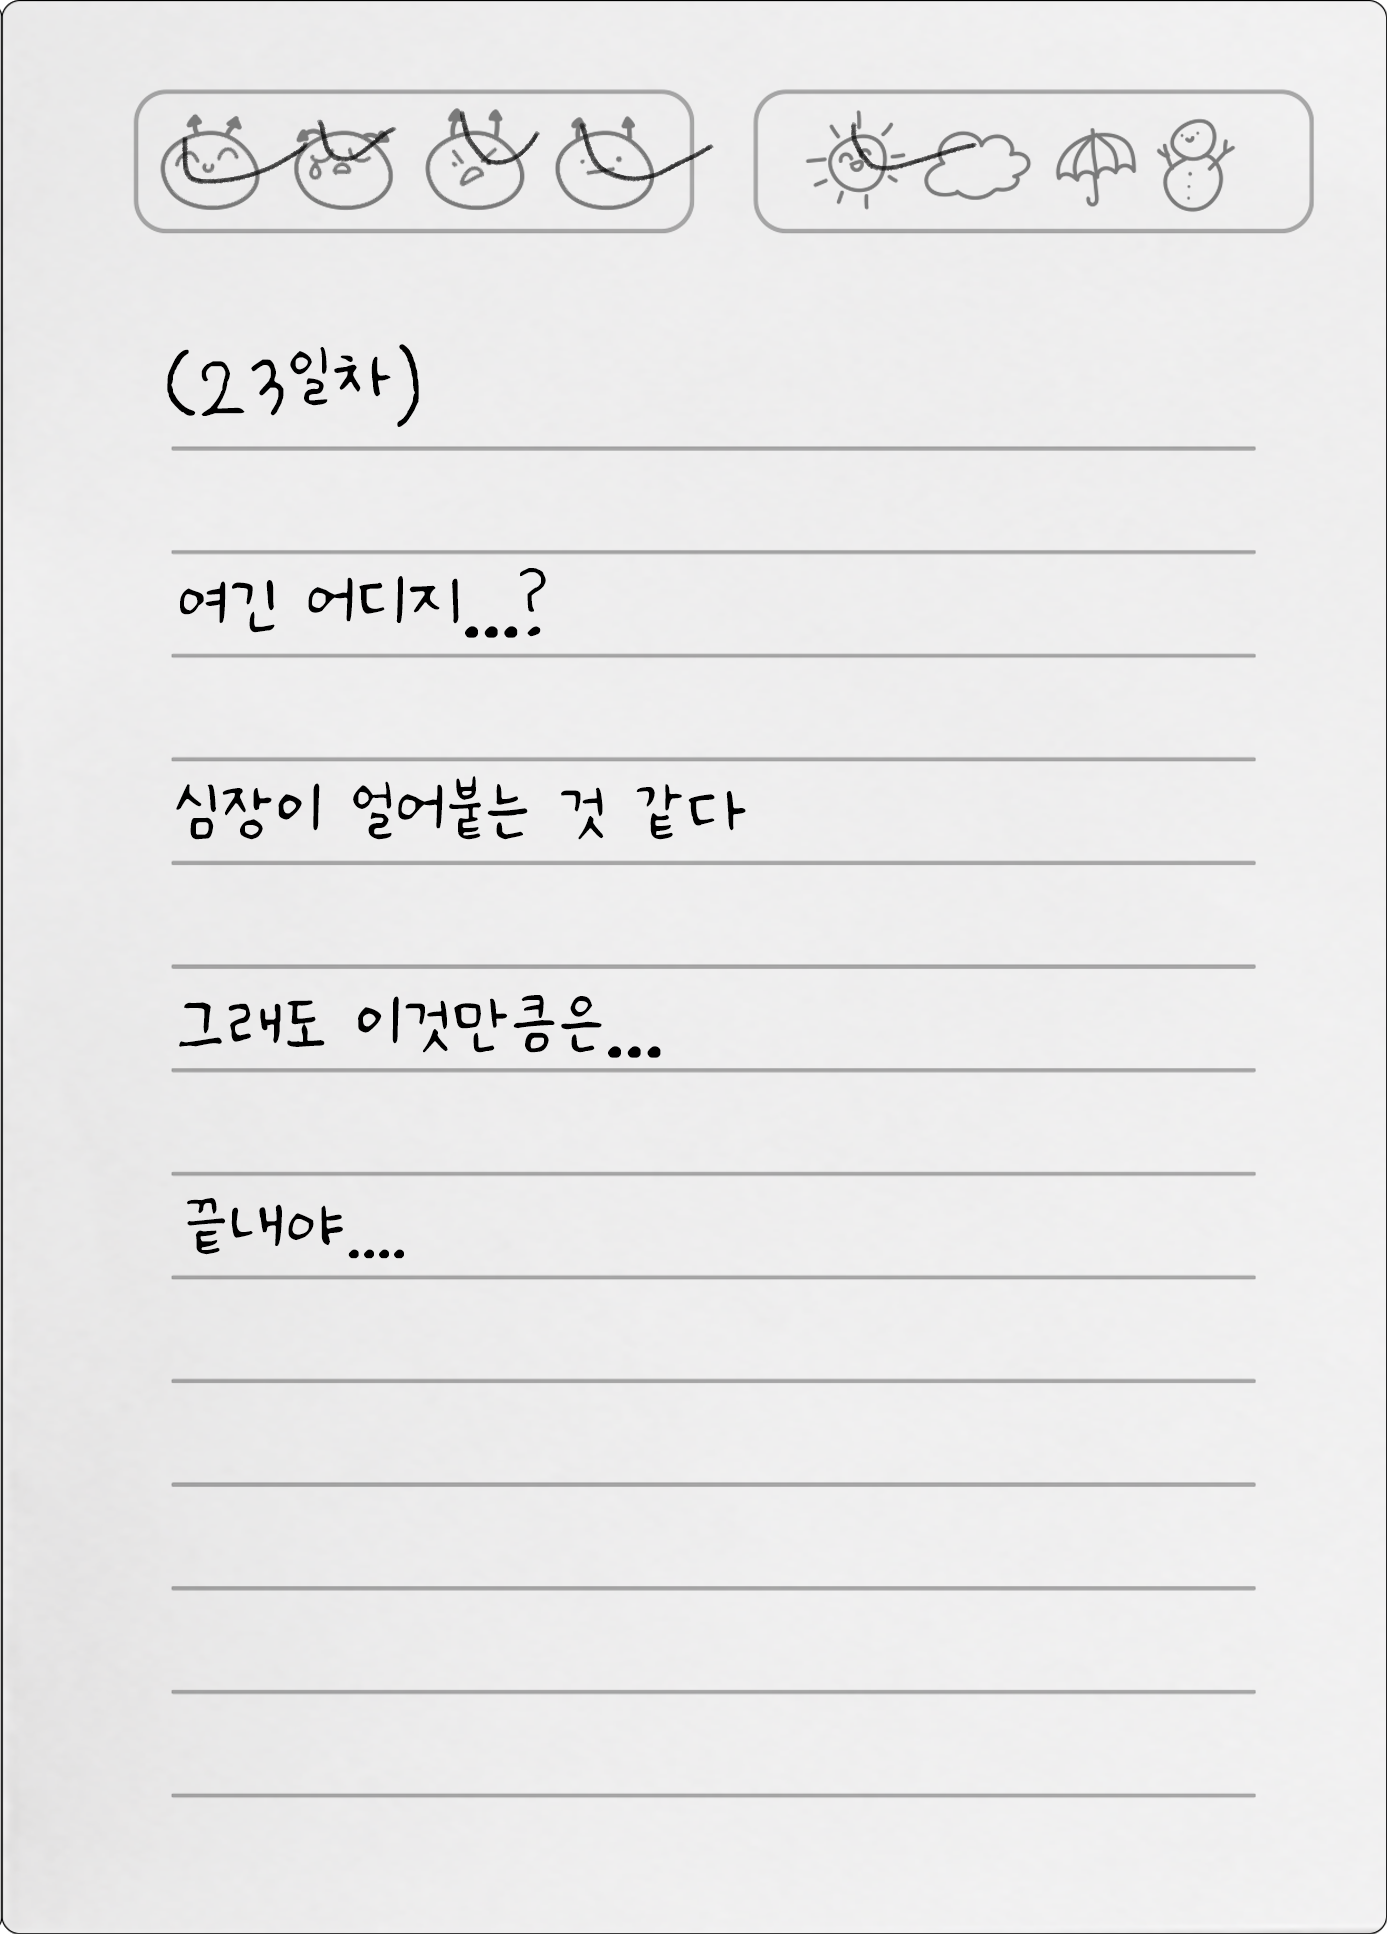 (23일차)
여긴 어디지...?
심장이 얼어붙는 것 같다
그래도 이것만큼은...
끝내야....